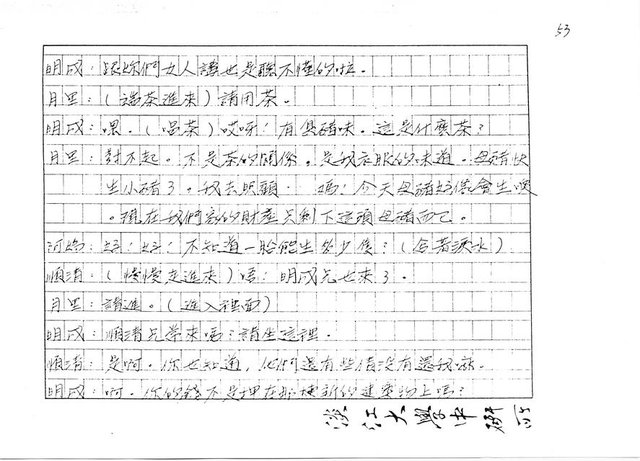 53
明成：跟妳們女人講也是聽不懂的啦。
月里：（端茶進來）請用茶。
明成：嘿。（喝茶）哎呀！有臭豬味。這是什麼茶？
月里：對不起。不是茶的關係。是我衣服的味道。母豬快
生小豬了。我去照顧。 媽！今天母豬好像會生哦
。現在我們家的財產只剩下這頭母豬而已。
好！好！不知道一胎能生多少隻？（含著淚水）
順清：（慢慢走進來）唔！明成兄也來了。
月里：請進。（進入裡面）
明成：順清兄常來嗎？請坐這裡。
順清：是啊。你也知道，他們還有些債沒有還我哪。
明成：啊。你的錢不是埋在那塊新的建築物上嗎？
淡江大學中研所